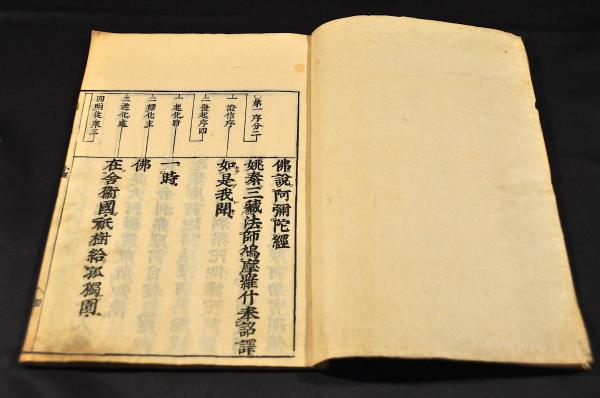 佛說阿彌陀經
姚秦三藏法師鳩摩羅什奉詔譯
如是我聞
一時
佛
在舍衛國祇樹給孤獨園
第一序分二
一證信序
二發起序四
一起化時
二標化主
三遊化處
四明徒衆三